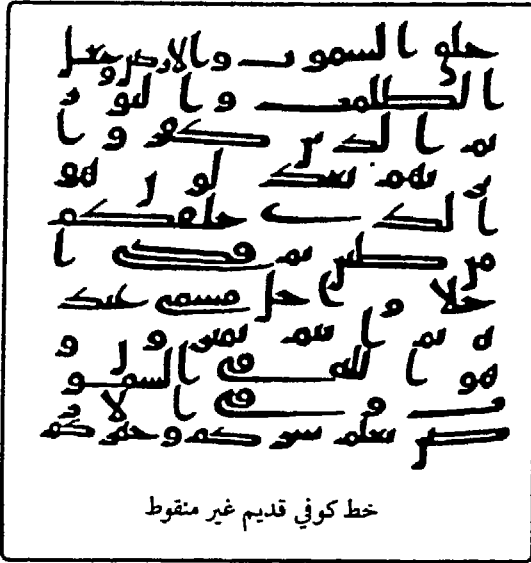 خلق السموت والارض وجعل
الظلمت والنور
ثم الذين كفروا
بربهم يعدلون هو
الذي خلقكم
من طين ثم قضى ا
جلا واجل مسمى عند
ه ثم انتم تمترون و
هو الله في السمو
ت وفي الا
رض يعلم سركم وجهركم
خط كوفي قديم غير منقوط